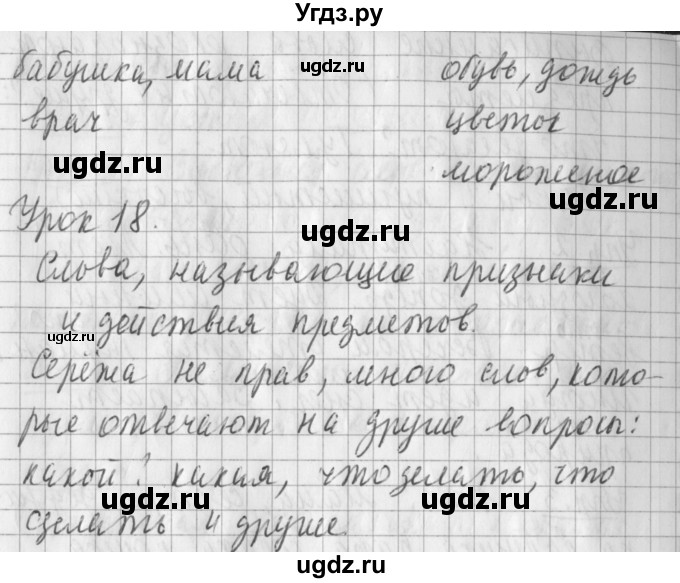 Угдз.ру
бабушка, мама обувь, дождь
ugdz.ru
врач цветок
ugdz.ru ugdz.ru
мороженое
Урок 18.
ugdz.ru ugdz.ru
Слова, называющие признаки
и действия предметов.
ugdz.ru ugdz.ru
Серёжа не прав, много слов, кото-
рые отвечают на другие вопросы:
какой? какая, что делать, что
ugdz.ru ugdz.ru
сделать и другие.
Угдз.ру